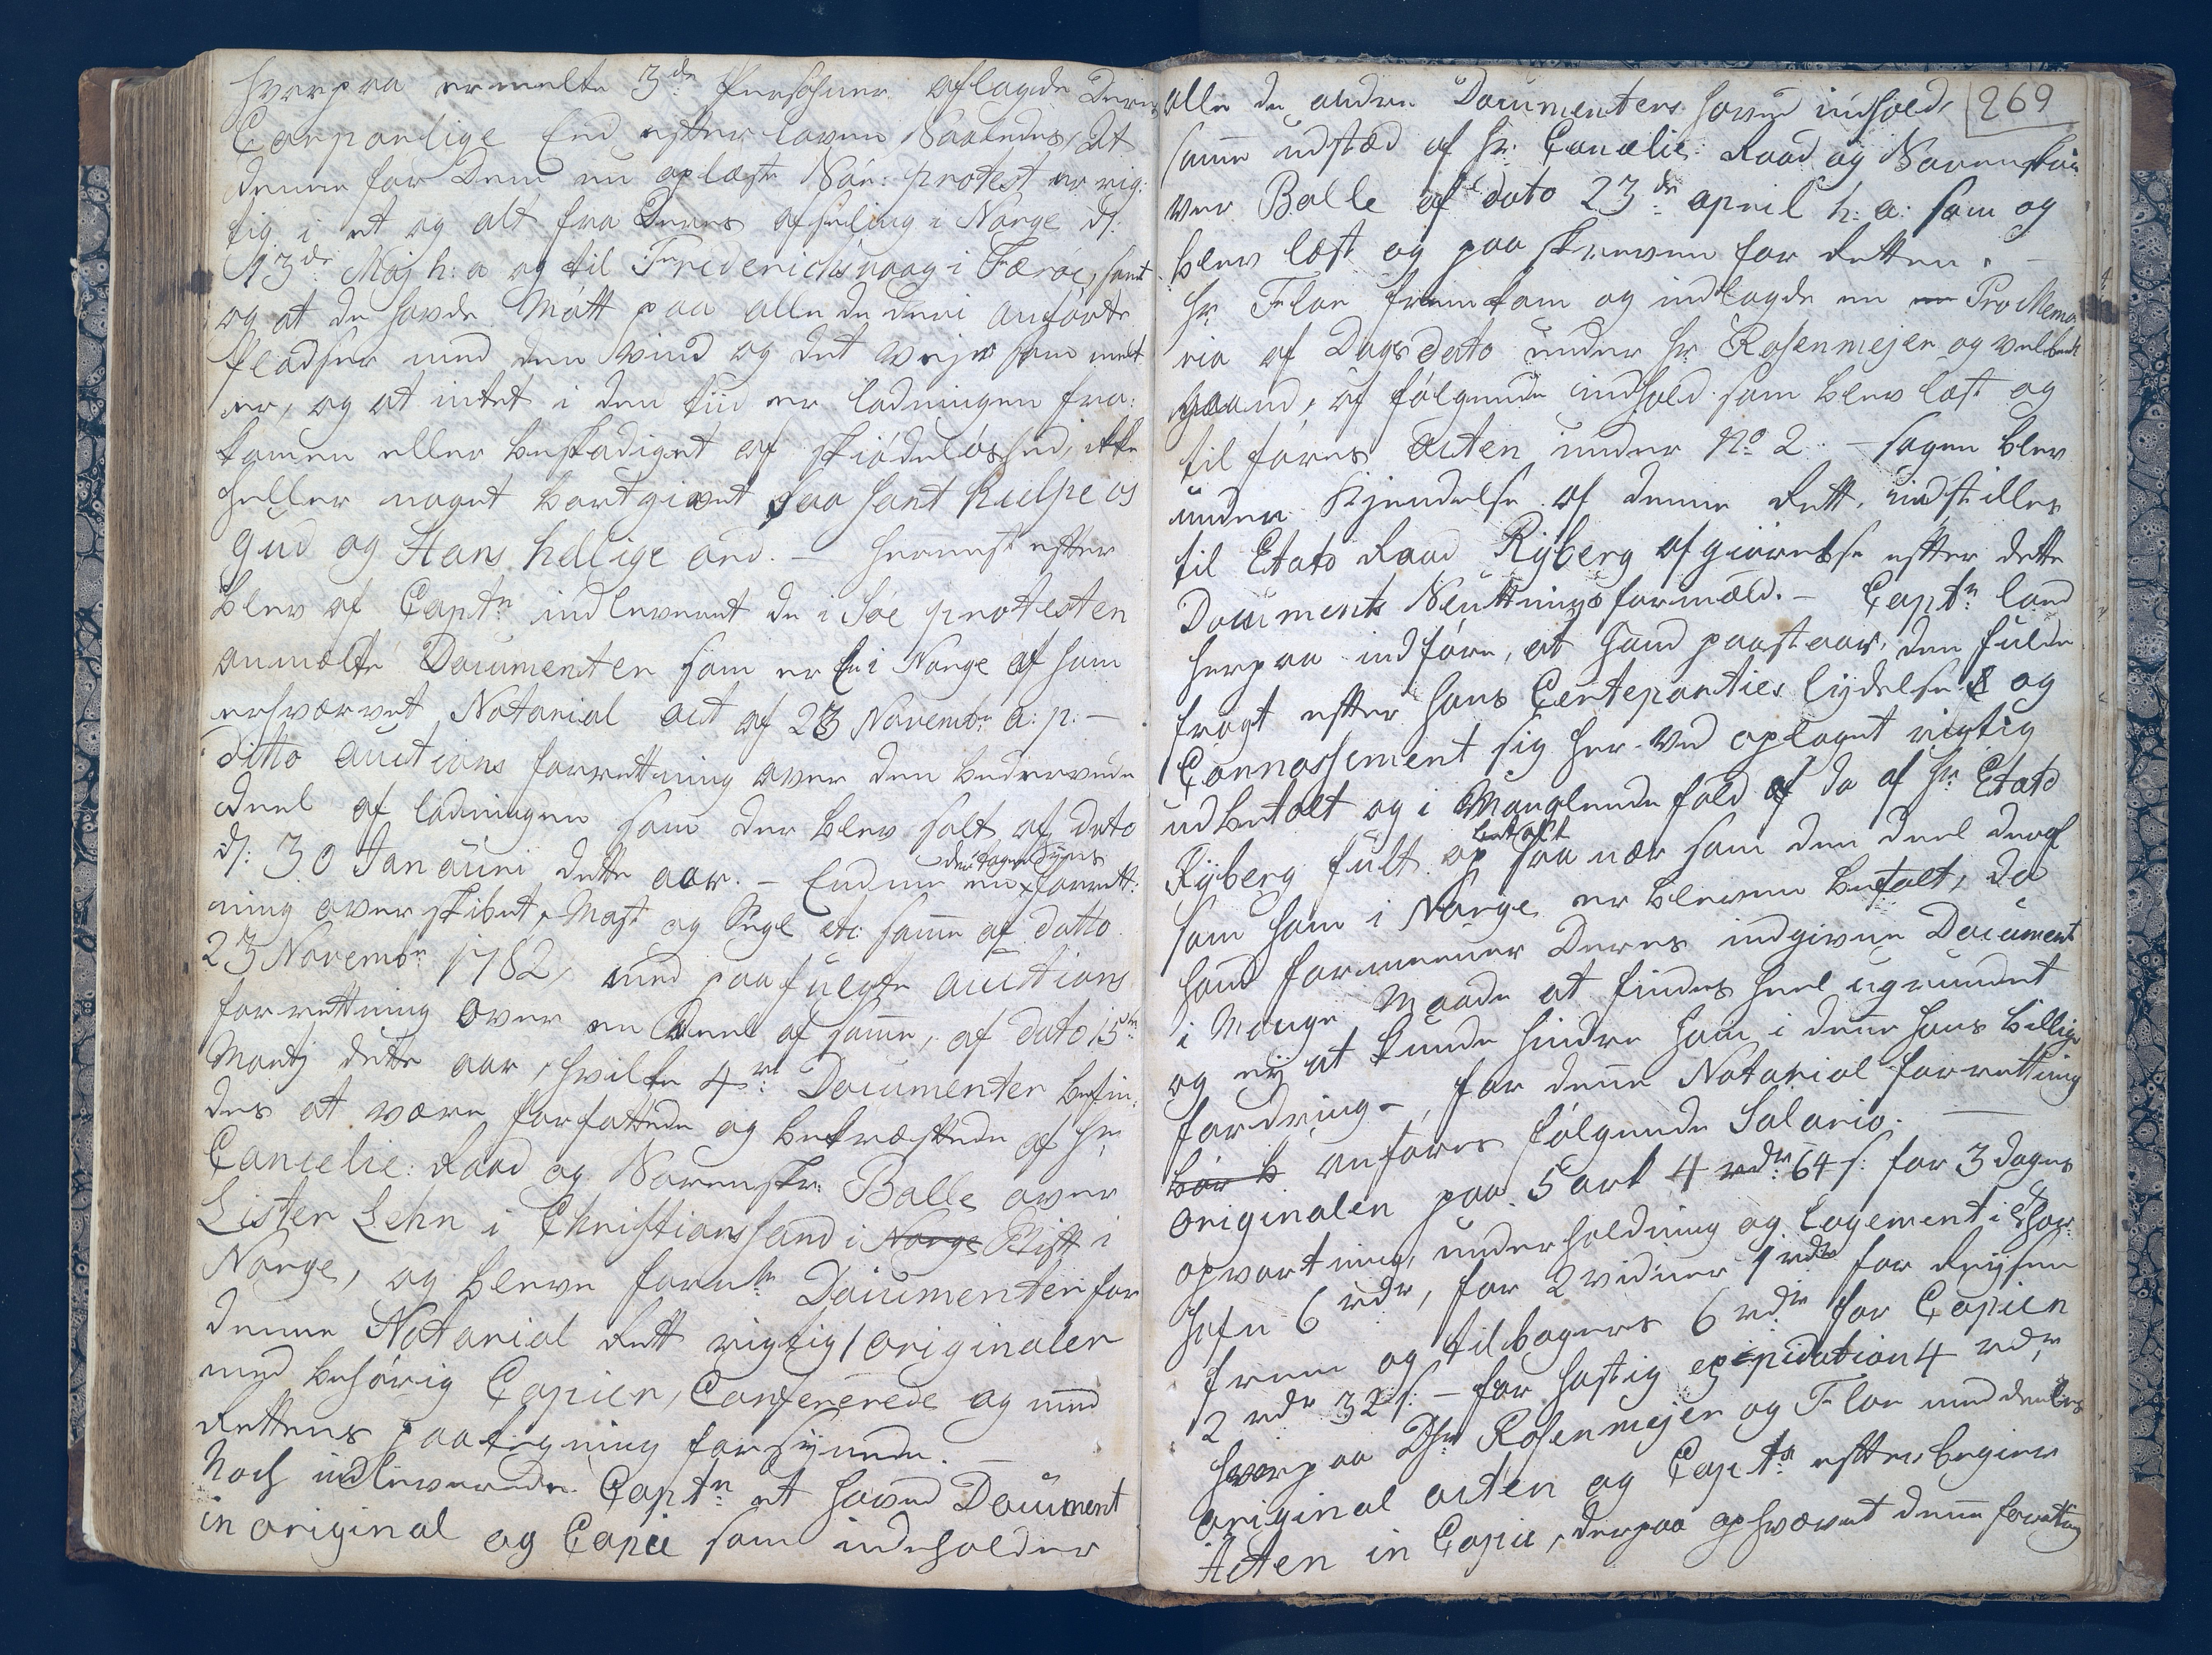 hvorpaa ermelte 3de Personer aflagde Deris
Corporlige Eed efter loven Saaledes, At
denne for Dem nu oplæste Söe: protest er rig:
tig i et og alt fra Deres afseling i Norge d/:
13de Maj h: a og til Friderichsvaag i Færöe, samt
og at de havde Mött paa alle de deri anförte
pladser med den Vind og det Vejr som melt
er, og at intet i den tiid er ladningen fra:
komen eller beskadiget af skiödelöshed, ikke
heller noget bortgivet saa sant hielpe os
gud og Hans hellige ord. — hernest efter
blev af Captn: indleveret de i Söe protesten
anmelte Documenter som er En i Norge af ham
erhværvet Notarial act af 23 Novembr: a: p: —
ditto auctions forretning over den bedervede
deel af ladningen som der blev solt af dato
d/: 30 Januari dette aar. — Endnu en
den tagen Syns
forrett:
ning over skibet, Mast og Segl etc: samme af datto
23 Novembr 1782, med paafulgte auctions
forrettning over en Deel af samme, af dato 15de
Martj dette aar, hvilke 4re: Documenter befin:
des at være forfattede og bekræftede af hr:
Cancelie: Raad og Sorenskr: Balle over
Lister Lehn i Christiansand i Norge Stift i
Norge, og bleve fornte Documenter for
denne Notarial Rett rigtig / originaler
med behörig Copier, Confererede og med
Rettens paategning forsÿnede. —
Noch indleverede Captn: et hoved Document
in original og Copie som indeholder
269
alle de andre Documenters hoved indhold,
samme udstæd af hr: Cancelie: Raad og Sorenskri:
ver Balle af dato 23de: april h: a: som og
blev læst og paaskreven for Retten. —
hr Flor fremkom og indlagde en en Pro Memo
ria af Dags dato under hr Rosenmejer og velbem
haand, af fölgende indhold som blev læst og
til föres Acten under No 2. — sagen blev
under Kjendelse af denne Rett, indstilles
til Etats Raad Rÿberg afgiörelse efter dette
Documents Slutnings formæld. — Captn: lod
herpaa indföre, at hand paastaar, den fulde
fragt efter hans Certeparties lÿdelse & og
Connossement sig her ved oplaget rigtig
udbetalt og i Manglende fald af da af hr Etats
Rÿberg fult op
betalt
saa nær som den deel deraf
som ham i Norge er bleven befalt, da
hand formeener Deres indgivne Document
i Mange Maade at findes heel ugrundet
og eÿ at kunde hindre ham i denne hans billige
fordring —, for denne Notarial forretning
bör b anföres fölgende Salario. —
originalen paa 5 ark 4 rdr: 64 s: for 3 dages
opvartning, underholdning og Logement i Thors
hafn 6 rdr, for 2 vidner 1 rdr for Reÿsen
frem og tilbagers 6 rdr for Copien
2 rdr 32 s: — for hastig expidation 4 rdr
hvorpaa Dhr Rosenmejer og Flor meddeeltes
original acten og Captn: efter begier
Acten in Copie, derpaa ophævet denne forretning